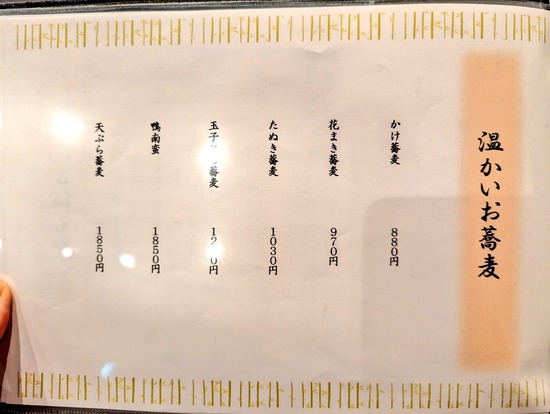 温かいお蕎麦
かけ蕎麦 880円
花まき蕎麦 970円
たぬき蕎麦 1030円
玉子 蕎麦
鴨南蛮 1850円
天ぷら蕎麦 1850円